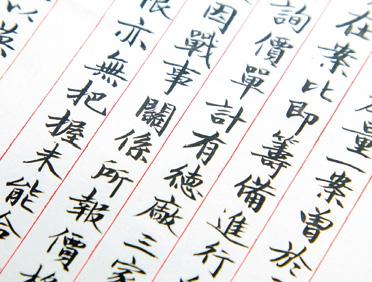 量一案曾於
在案比即籌備進行
詢價單計有德廠三家
因戰事關係所報價格
亦無把握未能合
以英